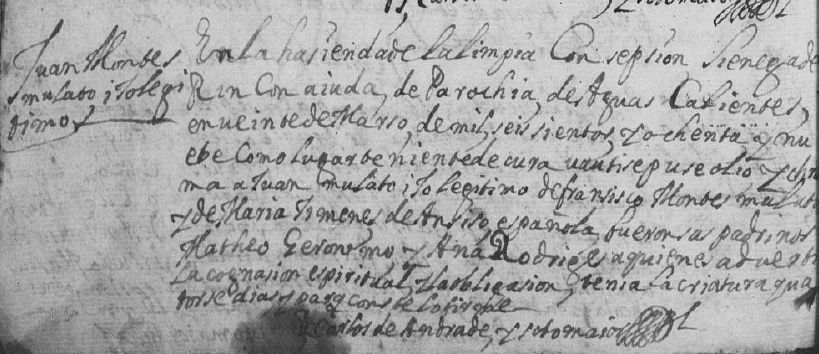 y sotomaior
Juan Montes
mulato ijo legi
timo
En la hasienda de la limpia Consepsion Sienega de
Rincon aiuda, de Parochia, de Aguas Calientes,
en veinte de Marso, de mil, seis sientos y ochenta y nu
ebe como lugarteniente de cura vautise puse olio y chris
ma a Juan mulato ijo legitimo de fransisco Montes mulato
y de Maria Ximenes de Ansiso, española, fueron sus padrinos
Matheo Geronimo y Ana Rodriges a quienes adverti
la cognasion espiritual y la obligasion, tenia la criatura qua
torse dias y para q conste lo firme
Carlos de Andrade, y sotomaior